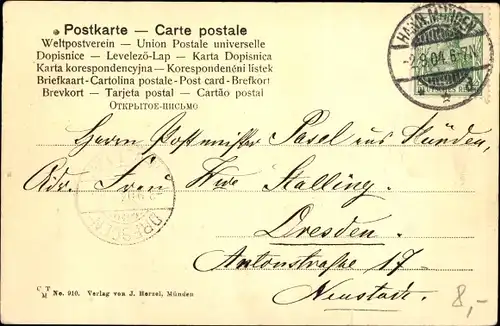 Postkarte — Carte postale
Weltpostverein — Union Postale universelle
Dopisnice — Levelező-Lap — Karta Dopisnica
Karta korespondencyjna — Korespondenční lístek
Briefkaart-Cartolina postale-Post card-Brefkort
Brevkort — Tarjeta postal — Cartão postal
ОТКРЫТОЕ-ПИСЬМО
HANN. MÜNDEN
-2.9.04. 6-7N.
Herrn Postmeister Pasel aus Münden,
Adr. Frau Wwe Stalling.
DRESDEN
Dresden.
Antonstraße 17
Neustadt.
C T M No. 910. Verlag von J. Herzel, Münden
8,-